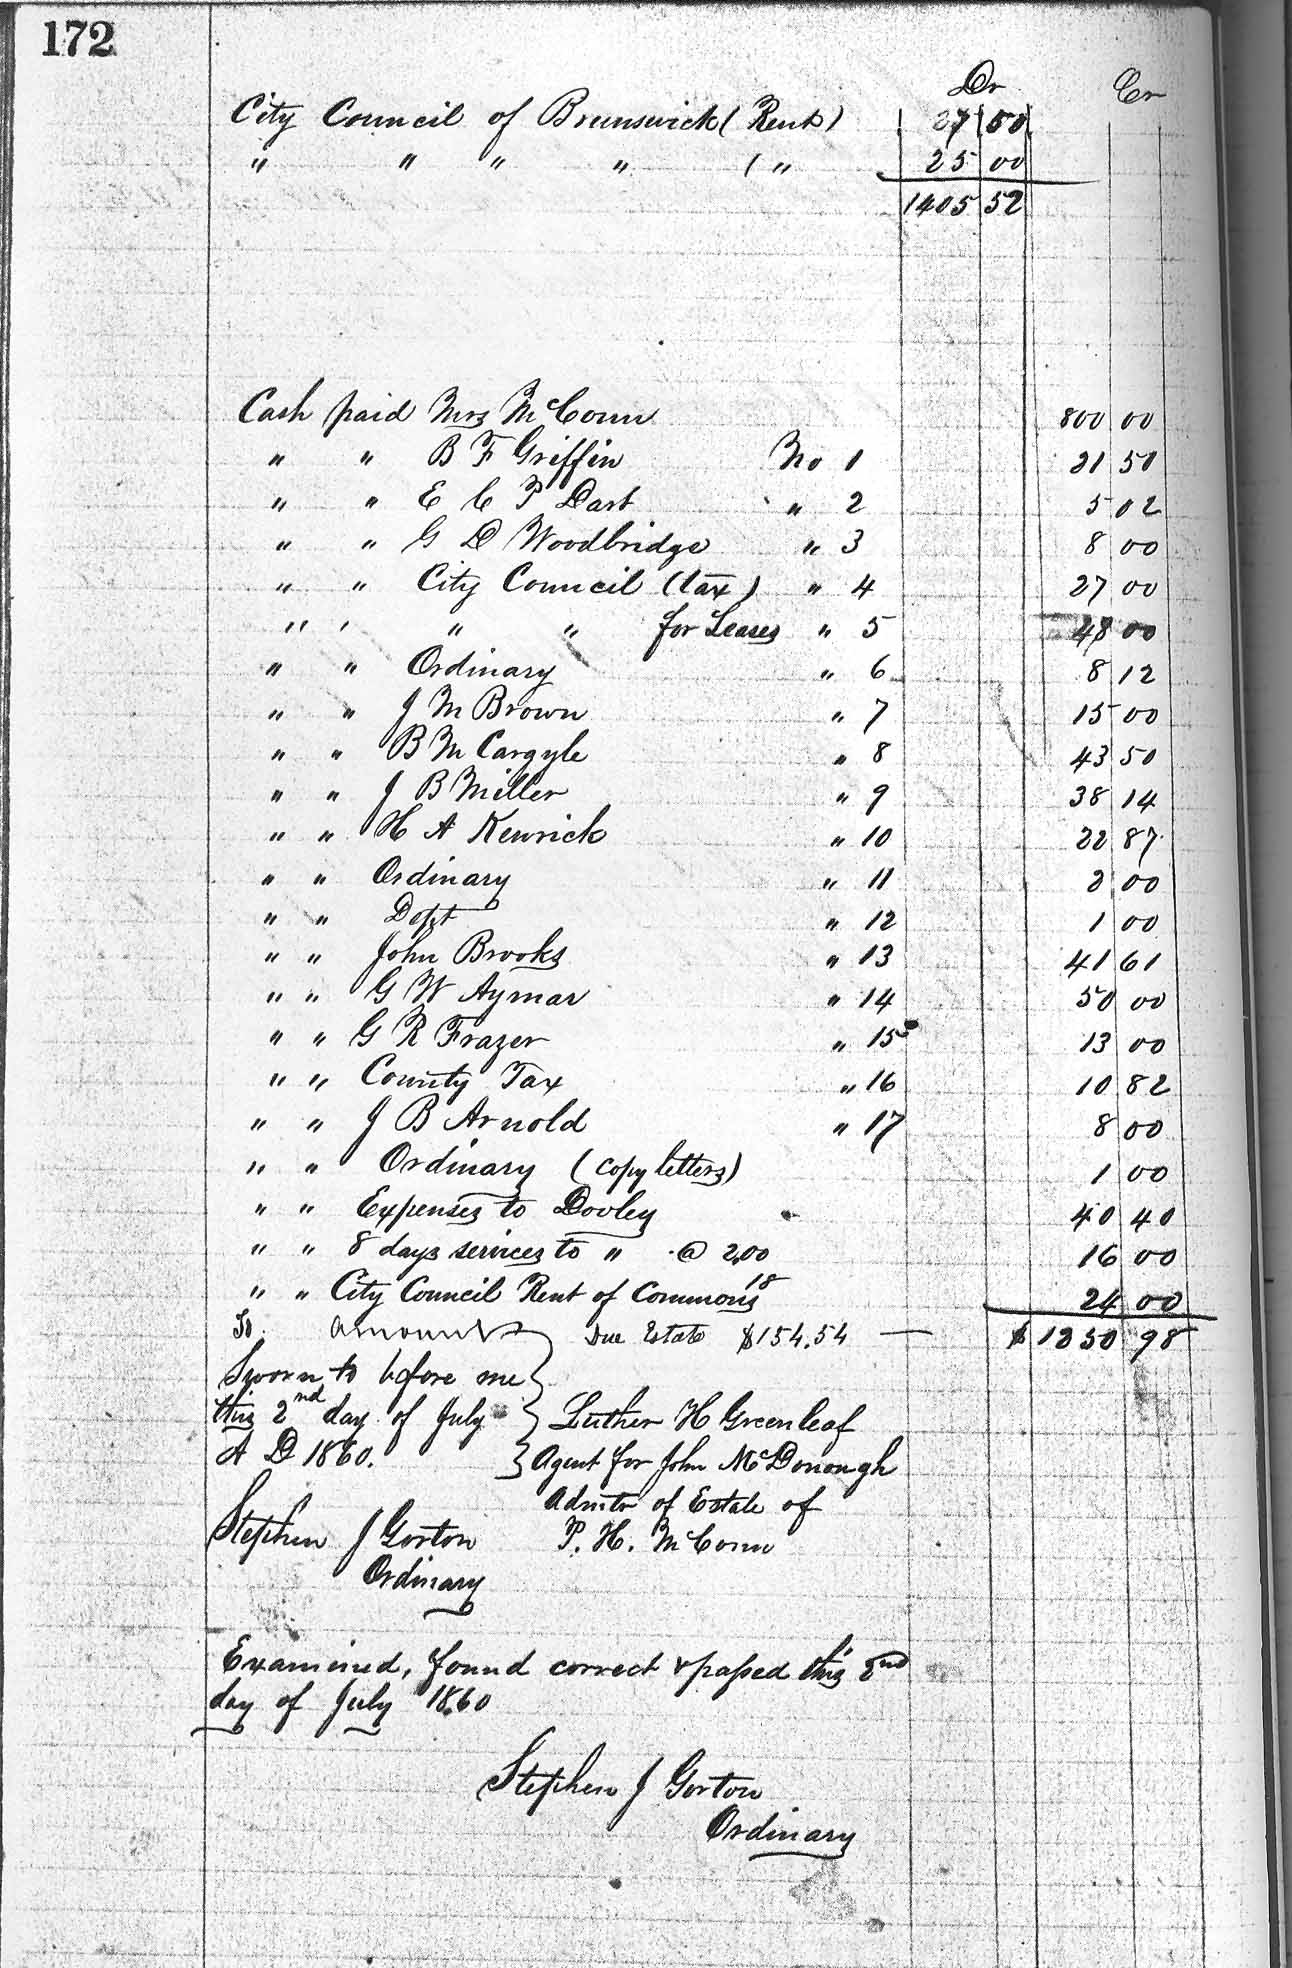 172
Dr Cr
City Council of Brunswick (Rent) 27 50
" " " " ( " 25 00
1405 52
Cash paid Mrs McConn 800 00
" " B F Griffin No 1 21 50
" " E C P Dart " 2 5 02
" " G D Woodbridge " 3 8 00
" " City Council (tax) " 4 27 00
" " " " for Leases " 5 48 00
" " Ordinary " 6 8 12
" " J M Brown " 7 15 00
" " B M Cargyle " 8 43 50
" " J B Miller " 9 38 14
" " H A Kenrick " 10 22 87
" " Ordinary " 11 2 00
" " Dept " 12 1 00
" " John Brooks " 13 41 61
" " G W Aymar " 14 50 00
" " G R Frazer " 15 13 00
" " County Tax " 16 10 82
" " J B Arnold " 17 8 00
" " Ordinary (copy letters) 1 00
" " Expenses to Dooley 40 40
" " 8 days services to " @ 2,00 16 00
" " City Council Rent of Commons 18 24 00
To amount Due Estate $154.54 — $1250 98
Sworn to before me
this 2nd day of July Luther H Greenleaf
A D 1860. Agent for John McDonough
Admtr of Estate of
Stephen J Gorton P. H. McConn
Ordinary
Examined, found correct & passed this 2nd
day of July 1860
Stephen J Gorton
Ordinary